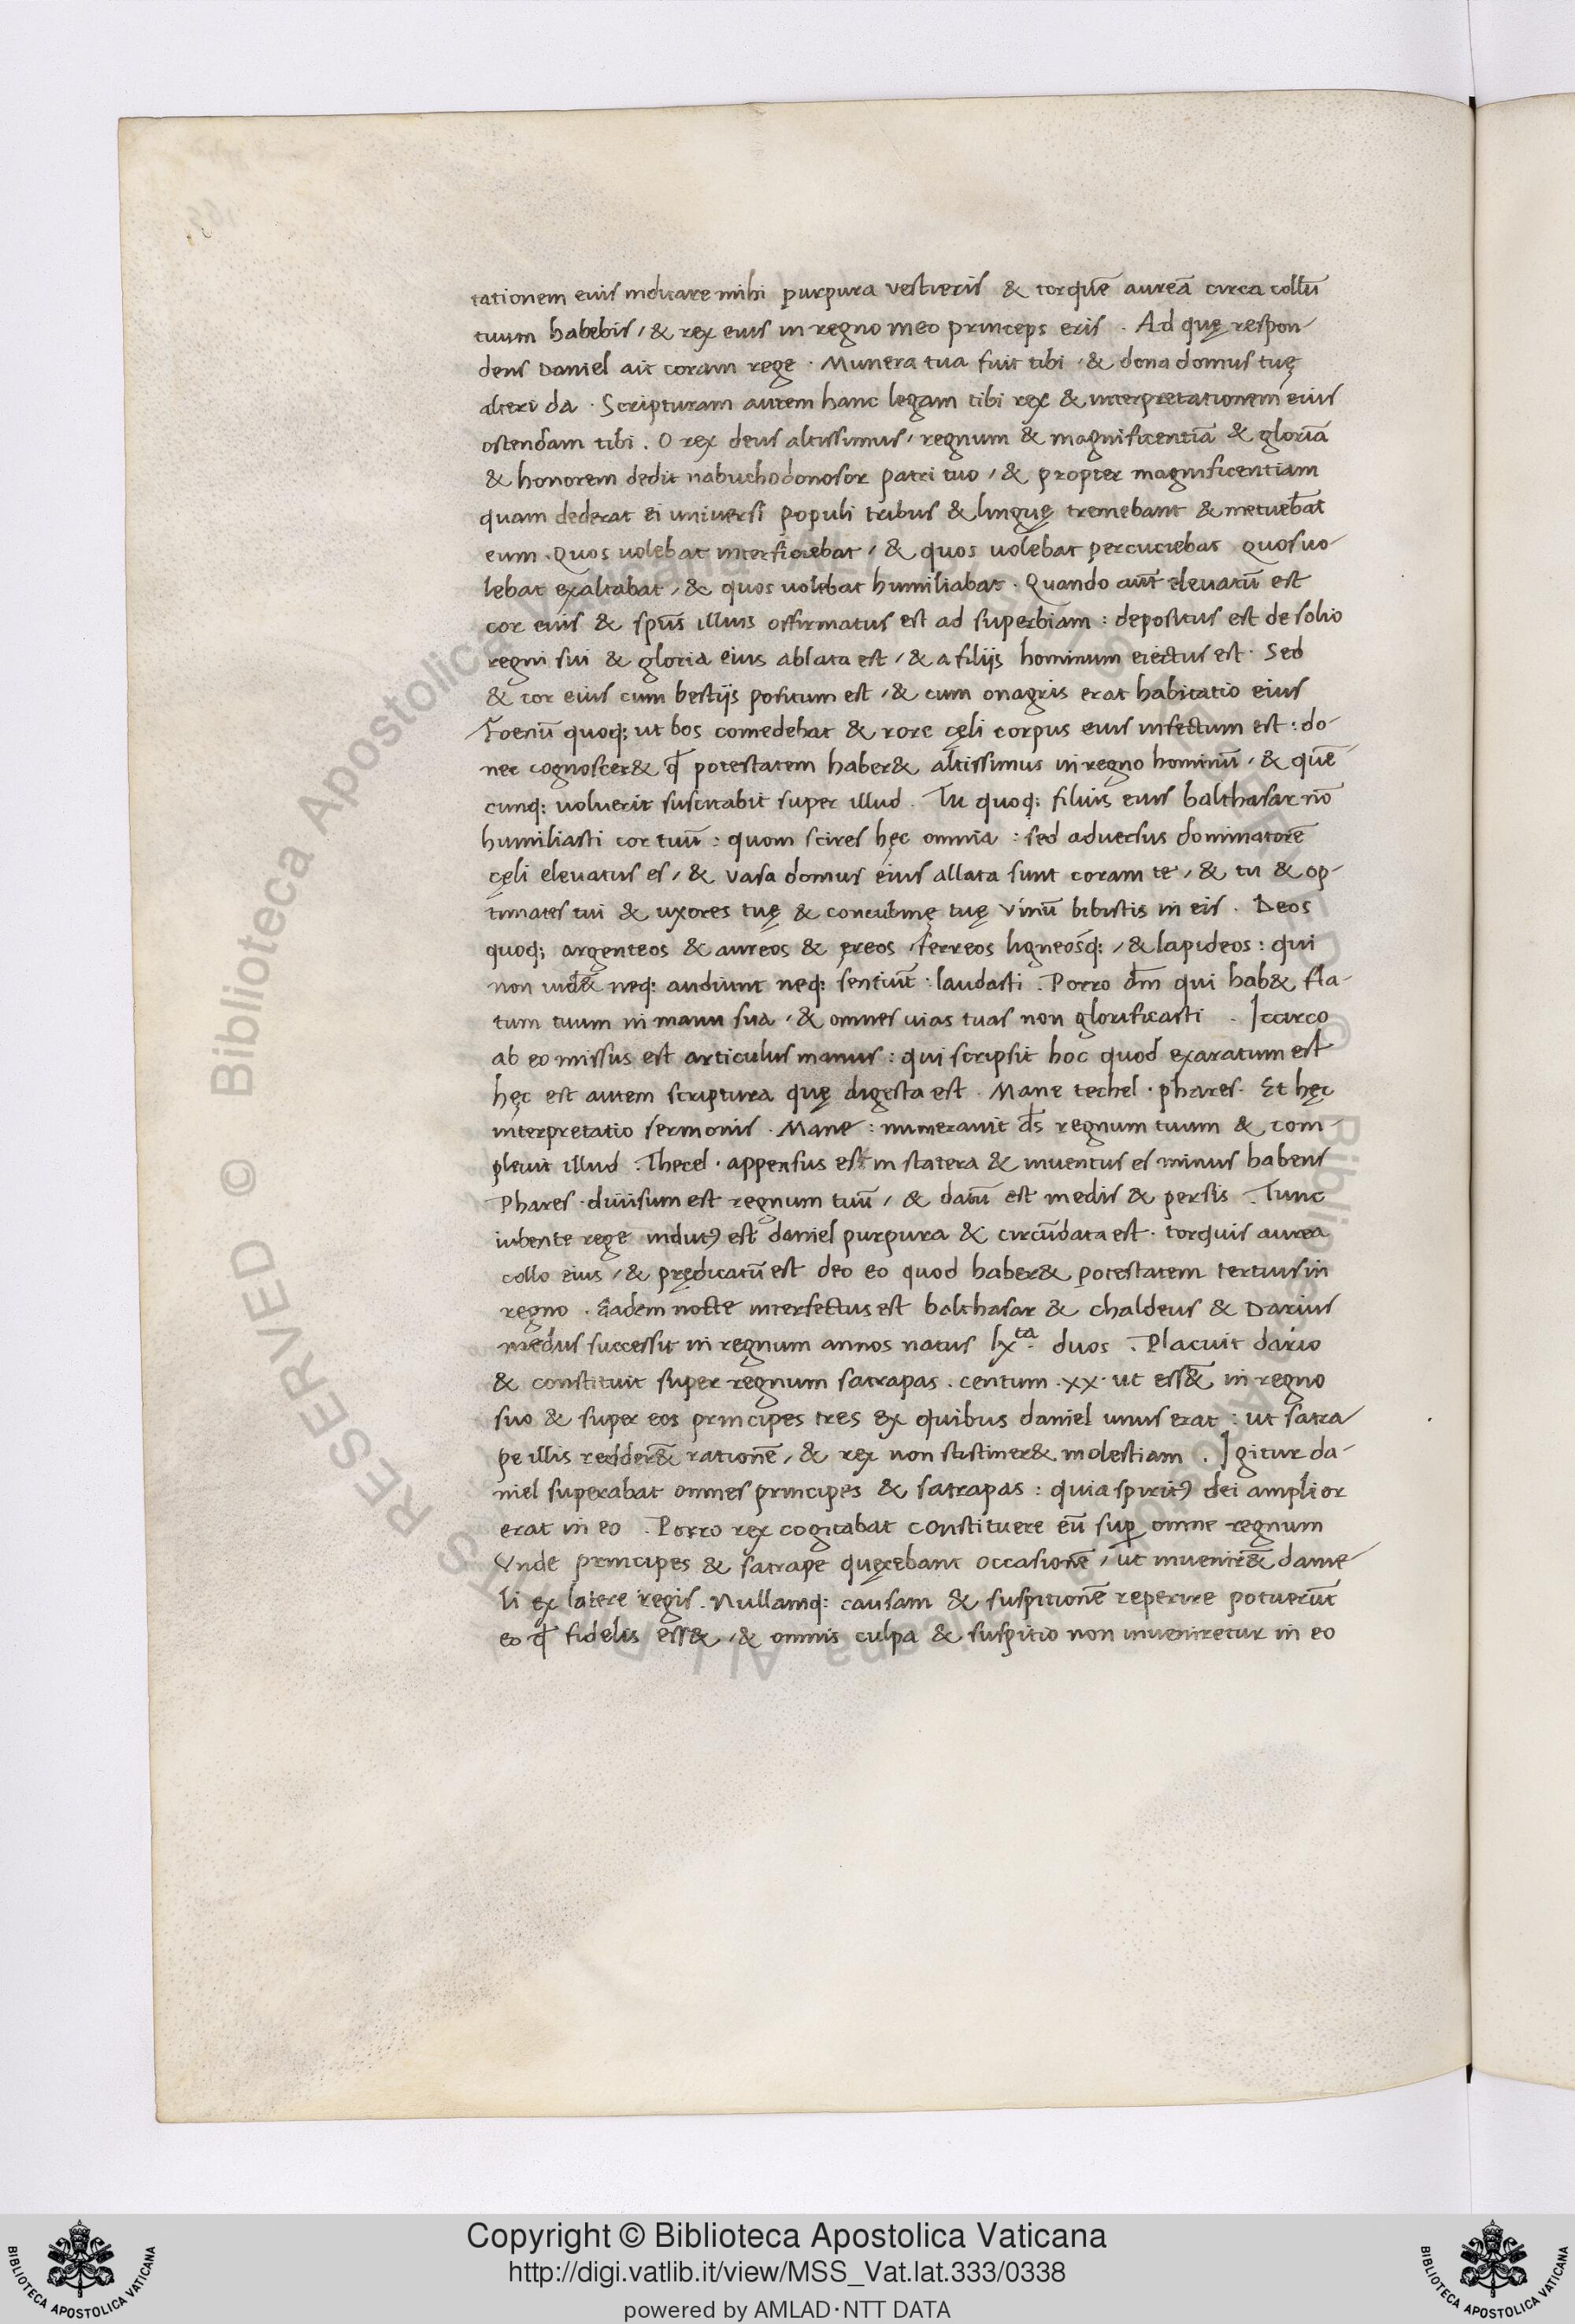 tationem eius indicare mihi purpura vestieris & torquē aureā circa collū
tuum habebis / & rex eius in regno meo princeps eris . Ad quę respon-
dens Daniel ait coram rege . Munera tua fuit tibi / & dona domus tuę
alteri da . Scripturam autem hanc legam tibi rex & interpretationem eius
ostendam tibi . O rex deus altissimus / regnum & magnificentiā & gloriā
& honorem dedit nabuchodonosor patri tuo / & propter magnificentiam
quam dederat ei universi populi tribus & linguę tremebant & metuebāt
eum . Quos uolebat interficiebat / & quos uolebat percuciebat quos uo-
lebat exaltabat / & quos uolebat humiliabat . Quando aūt elevatū est
cor eius & spūs illius offirmatus est ad superbiam : depositus est de solio
regni sui & gloria eius ablata est / & a filijs hominum eiectus est . Sed
& cor eius cum bestijs positum est / & cum onagris erat habitatio eius
Foenū quoq; ut bos comedebat & rore cęli corpus eius infectum est : do-
nec cognoscer& ꝙ potestatem haber& altissimus in regno hominū / & quē-
cunq; voluerit suscitabit super illud . Tu quoq; filius eius balthasar nō
humiliasti cor tuū : quom scires hęc omnia : sed adversus dominatorē
cęli elevatus es / & vasa domus eius allata sunt coram te / & tu & op-
timates tui & uxores tuę & concubinę tuę vinū bibistis in eis . Deos
quoq; argenteos & aureos & ęreos / ferreos ligneosq; / & lapideos : qui
non uid&̄ neq; audiunt neq; sentiūt : laudasti . Porro dm̄ qui hab& fla-
tum tuum in manu sua / & omnes uias tuas non glorificasti . Iccirco
ab eo missus est articulus manus : qui scripsit hoc quod exaratum est
hęc est autem scriptura quę digesta est . Mane techel . phares . Et hęc
interpretatio sermonis . Mane : numeravit ds̄ regnum tuum & com-
plevit illud . Thecel . appensus est in statera & inventus es minus habens
Phares . divisum est regnum tuū / & datū est medis & persis . Tunc
iubente rege indutꝰ est daniel purpura & circūdata est . torquis aurea
collo eius / & prędicatū est deo eo quod haber& potestatem tertius in
regno . Eadem nocte interfectus est balthasar & chaldeus & Darius
medus successit in regnum annos natus lxta. duos . Placuit dario
& constituit super regnum satrapas . centum . xx . ut ess&̄ in regno
suo & super eos principes tres ex quibus daniel unus erat : ut satra-
pe illis redder&̄ rationē / & rex non sustiner& molestiam . Igitur da-
niel superabat omnes principes & satrapas : quia spiritꝰ dei amplior
erat in eo . Porro rex cogitabat constituere eū suꝑ omne regnum
Vnde principes & satrape quęrebant occasionē / ut invenir&̄ danie-
li ex latere regis . Nullamq; causam & suspitionē reperire potuerūt
eo ꝙ fidelis ess& / & omnis culpa & suspitio non inveniretur in eo
Copyright © Biblioteca Apostolica Vaticana
http://digi.vatlib.it/view/MSS_Vat.lat.333/0338
powered by AMLAD·NTT DATA